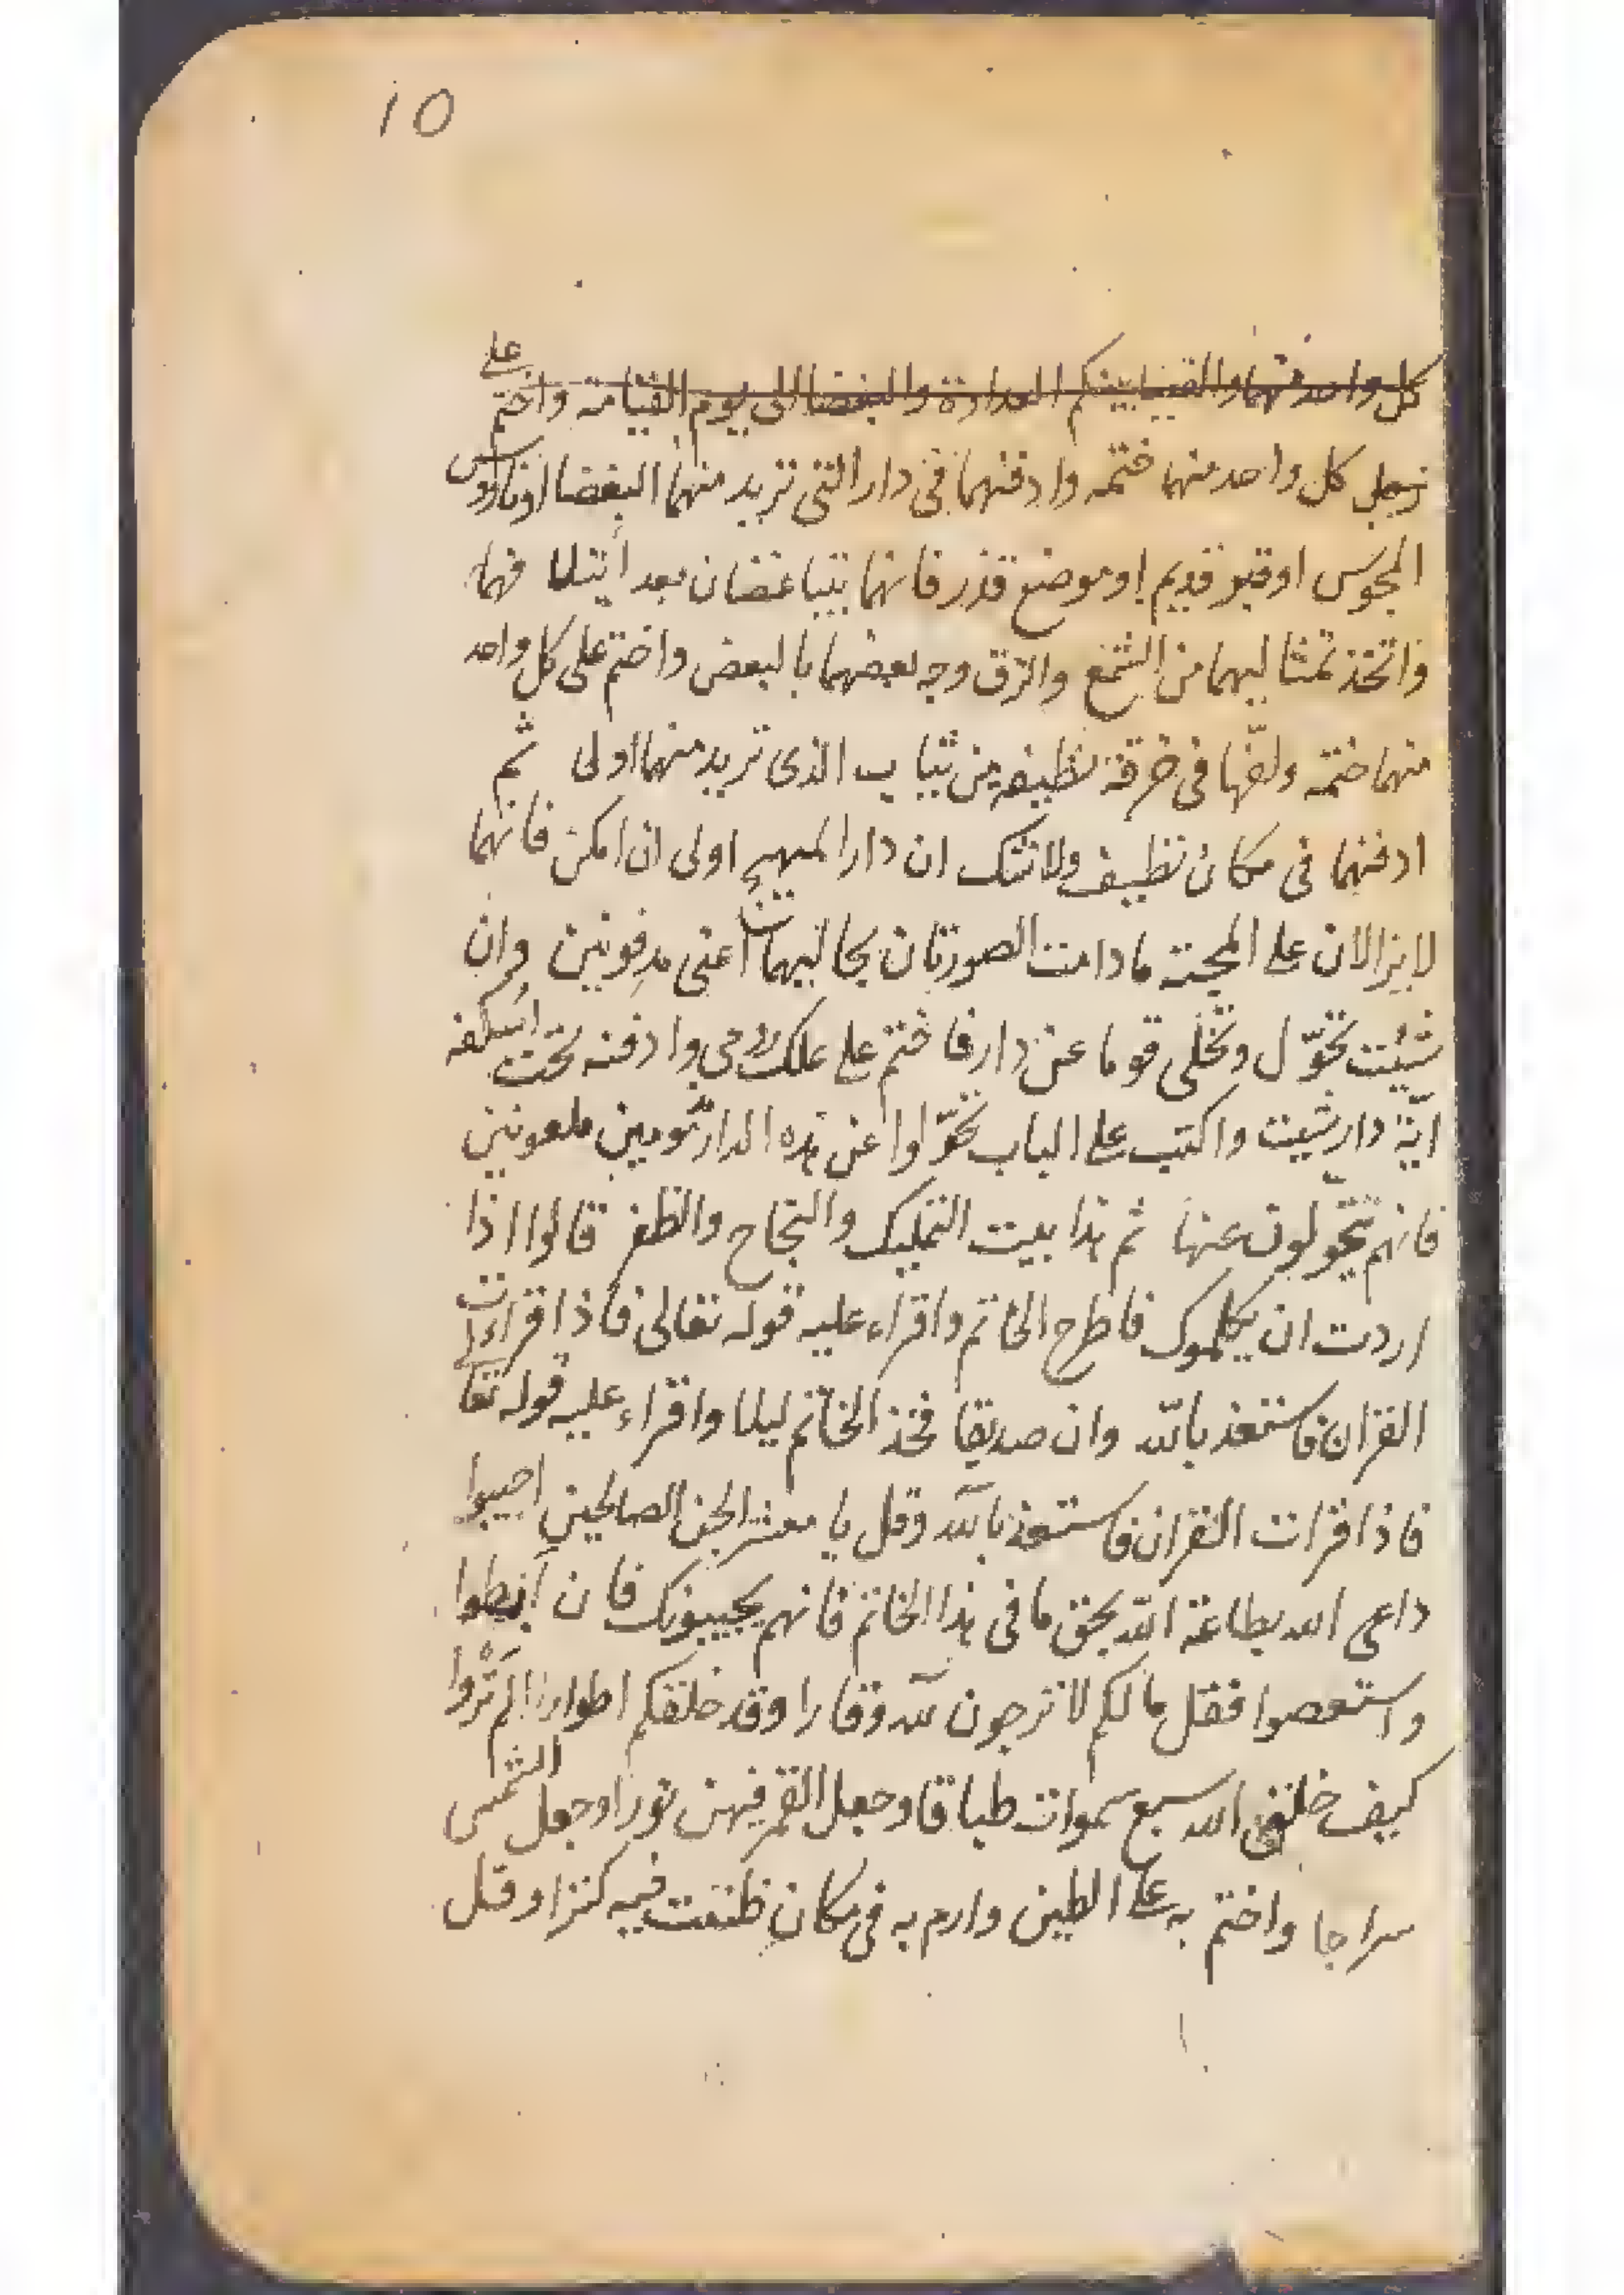 10
كل واحد منهما والقينا بينكم العداوة والبغضا الى يوم القيامة واختم على
كل واحد منهما ختمه وادفنهما فى دار التى تريد منهما البغضا او ناووس
المجوس او قبو قديم او موضع قذر فانهما يتباغضان بعد
واتخذ تمثاليهما من الشمع والزق وجه بعضهما بالبعض واختم على كل واحد
منهما ختمه ولفها فى خرقة نظيفه من ثياب الذى تريد منهما اولى ثم
ادفنهما فى مكان نظيف ولا شك ان دار اولى ان امكن فانهما
لا يزالان على المحبة ما دامت الصورتان بحاليهما اعنى مدفونتين وان
شئت تحوّل وتخلى قوما عن دار فاختم على علك رومى وادفنه تحت اسكفه
ايّة دار شيت واكتب على الباب تحوّلوا عن هذه الدار شومين ملعونين
فانهم يتحولون عنها ثم هذا بيت التمليك والنجاح والظفر قالوا اذا
اردت ان يكلموك فاطرح الخاتم واقراء عليه قوله تعالى فاذا قراءت
القران فاستعذ بالله وان صديقا فخذ الخاتم ليلا واقراء عليه قوله تعالى
فاذا قرات القران فاستعذ بالله وقل يا معشر الجن الصالحين اجيبوا
داعى الله بطاعة الله بحق ما فى هذا الخاتم فانهم يجيبونك فان ابطوا
واستعصوا فقل ما لكم لا ترجون لله وقارا وقد خلقكم اطوارا الم تروا
كيف خلق الله سبع سموات طباقا وجعل القمر فيهن نورا وجعل الشمس
سراجا واختم به على الطين وارم به فى مكان ظننت فيه كنزا وقل